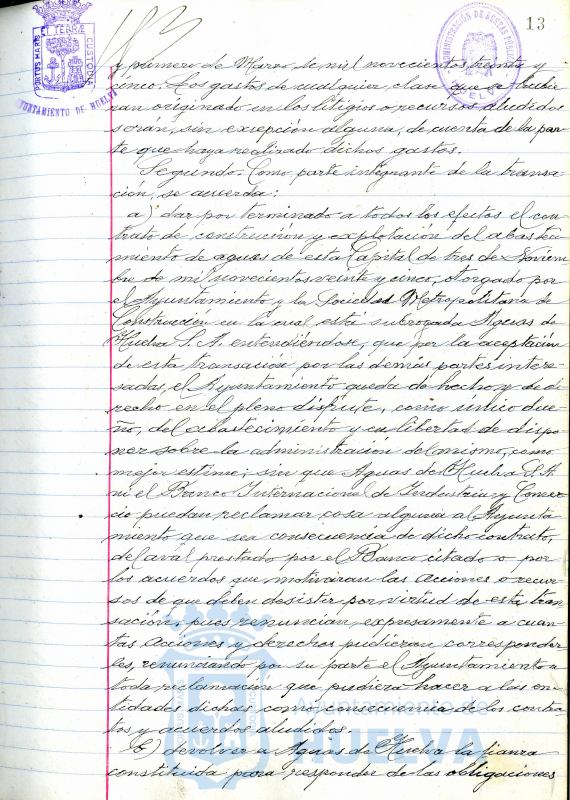 13
PORTUS MARIS ET TERRÆ CUSTODIA
AYUNTAMIENTO DE HUELVA
ADMINISTRACIÓN DE
y primero de Marzo de mil novecientos treinta y
cinco. Los gastos de cualquier clase que se hubie
ran originado en los litigios o recursos aludidos
serán, sin excepción alguna, de cuenta de la par-
te que haya realizado dichos gastos.
Segundo. Como parte integrante de la transa-
ción, se acuerda:
a) dar por terminado a todos los efectos el con-
trato de construcción y explotación del abasteci-
miento de aguas de esta Capital de tres de Noviem-
bre de mil novecientos veinte y cinco, otorgado por
el Ayuntamiento y la Sociedad Metropolitana de
Construcción en la cual está subrogada Aguas de
Huelva S.A. entendiéndose, que por la aceptación
de esta transacción por las demás partes intere-
sadas, el Ayuntamiento queda de hecho y de de-
recho en el pleno disfrute, como único due-
ño, del abastecimiento y en libertad de dispo-
ner sobre la administración del mismo, como
mejor estime; sin que Aguas de Huelva S.A.
ni el Banco Internacional de Industria y Comer-
cio puedan reclamar cosa alguna al Ayunta-
miento que sea consecuencia de dicho contrato,
del aval prestado por el Banco citado o por
los acuerdos que motivaran las acciones o recur-
sos de que deben desistir por virtud de esta tran-
sación, pues renuncian expresamente a cuan-
tas acciones y derechos pudieran corresponder-
les, renunciando por su parte el Ayuntamiento a
toda reclamación que pudiera hacer a las en-
tidades dichas como consecuencia de los contra-
tos y acuerdos aludidos.
b) devolver a Aguas de Huelva la fianza
constituida para responder de las obligaciones
Ayuntamiento de
HUELVA